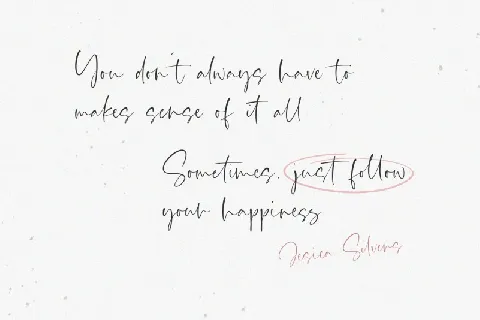 You don't always have to
makes sense of it all
Sometimes, just follow
your happiness
Jesica Selvens